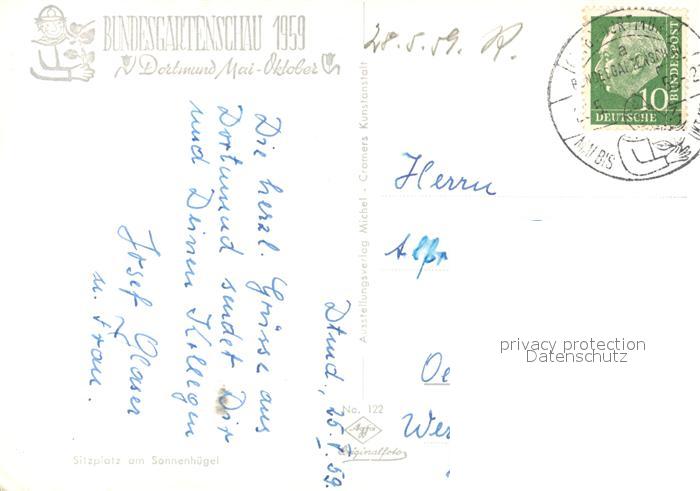 BUNDESGARTENSCHAU 1959
Dortmund Mai-Oktober
28.5.59.
10
DEUTSCHE
BUNDESPOST
MAI BIS
Die herzl. Grüsse aus
Dortmund sendet Dir
und Deinen Kollegen
Josef Glaser
u. Frau.
Dtmd., 25.V.59.
Herrn
Alfr
Oe
Wes
privacy protection
Datenschutz
Ausstellungsverlag Michel - Cramers Kunstanstalt
No. 122
Agfa
Originalfoto
Sitzplatz am Sonnenhügel